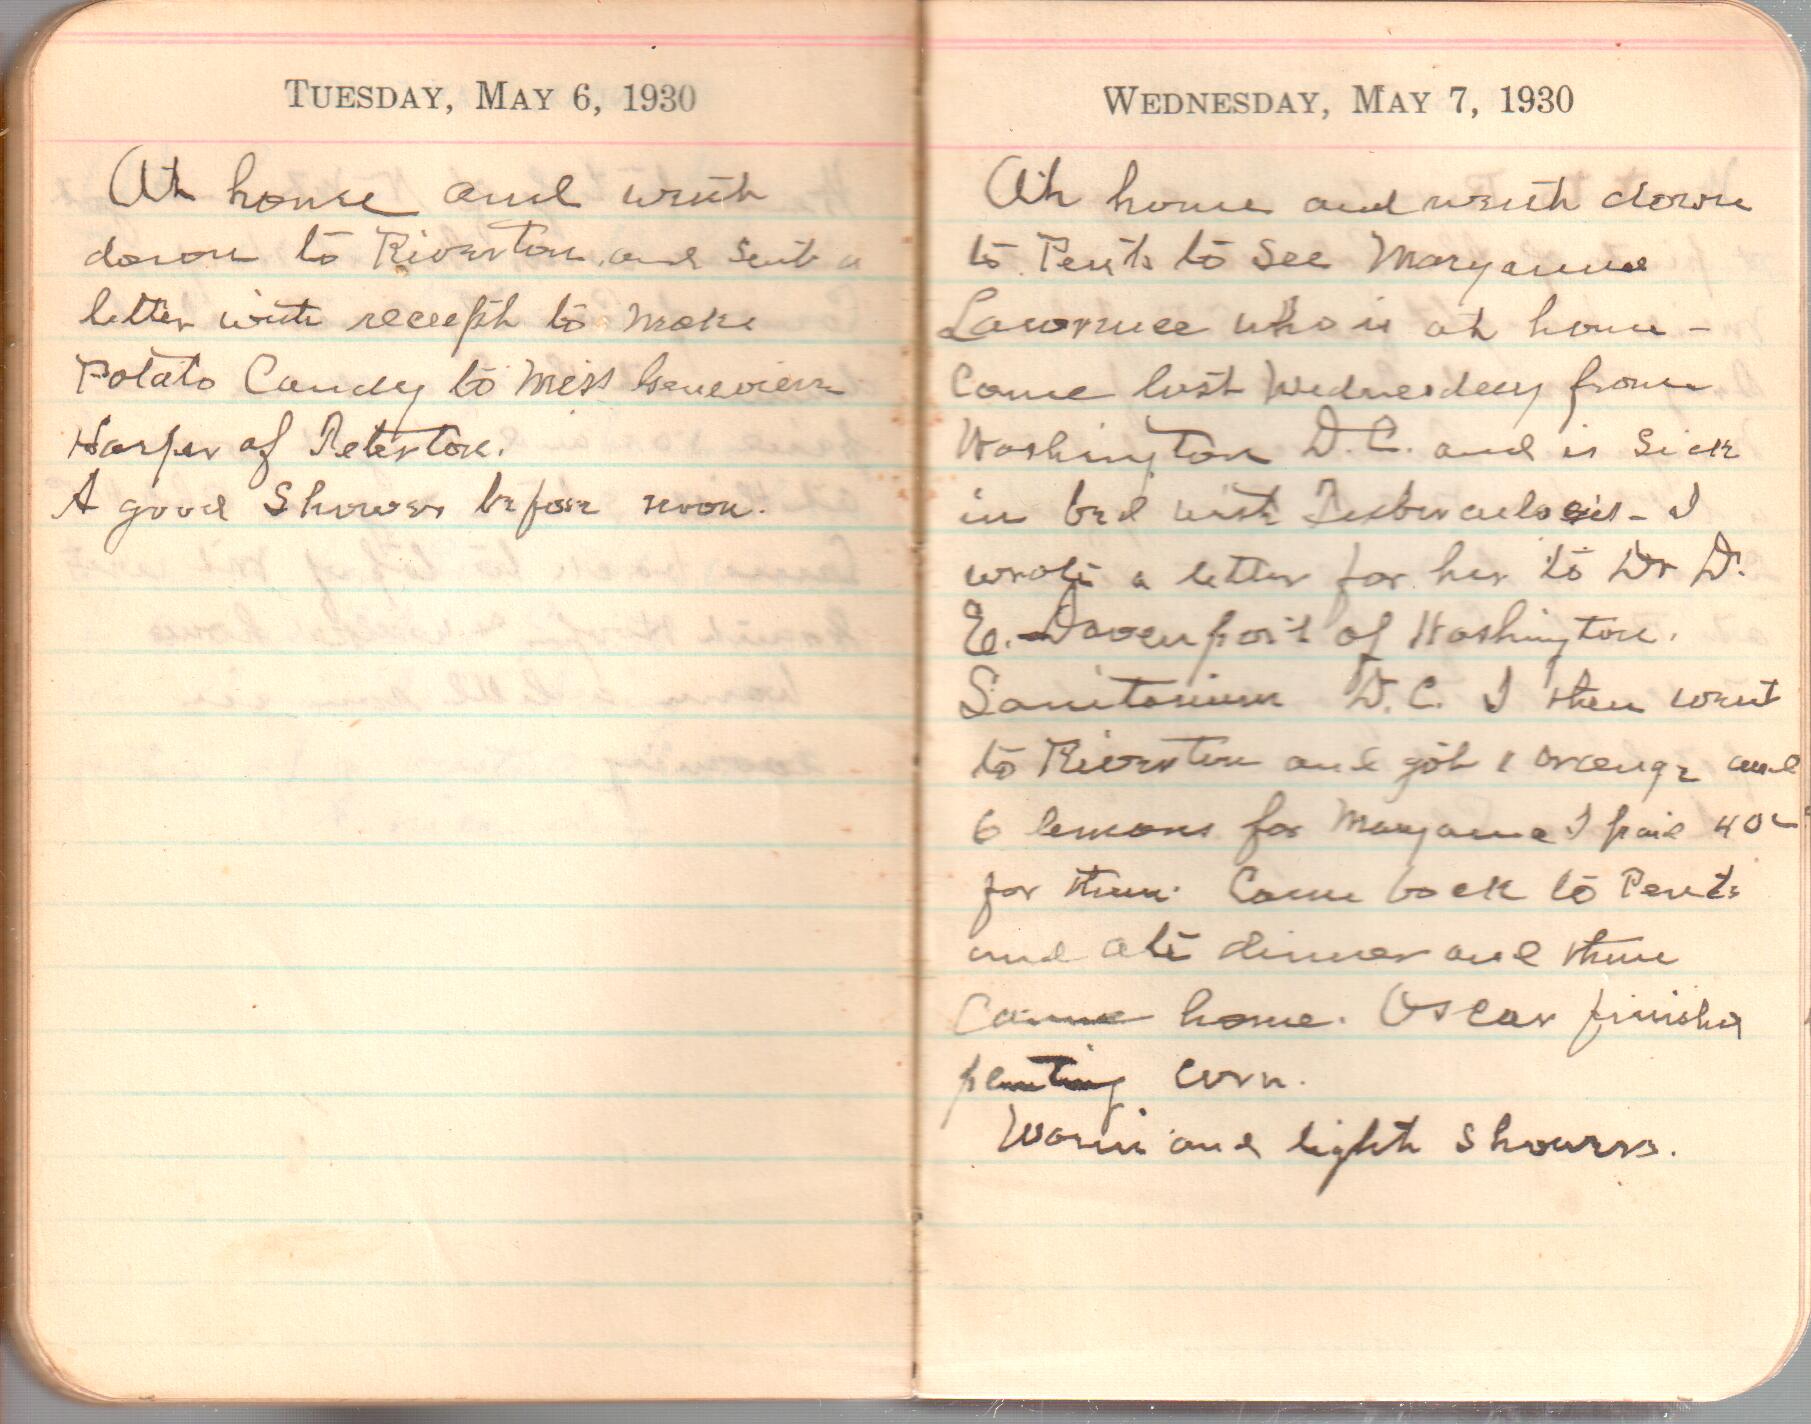 TUESDAY, MAY 6, 1930
At home and went
down to Riverton and sent a
letter with receipt to make
Potato Candy to Miss Genevieve
Harper of Peterton.
A good shower before noon.
WEDNESDAY, MAY 7, 1930
At home and went down
to Pent's to see Maryanna
Lawrence who is at home -
Come last Wednesday from
Washington D.C. and is sick
in bed with Tuberculosis - I
wrote a letter for her to Dr D.
E. Davenport of Washington.
Sanitorium D.C. I then went
to Riverton and got 1 orange and
6 lemons for Maryanna I paid 40c
for them. Come back to Pent's
and ate dinner and then
Came home. Oscar finished
planting corn.
Warm and light showers.